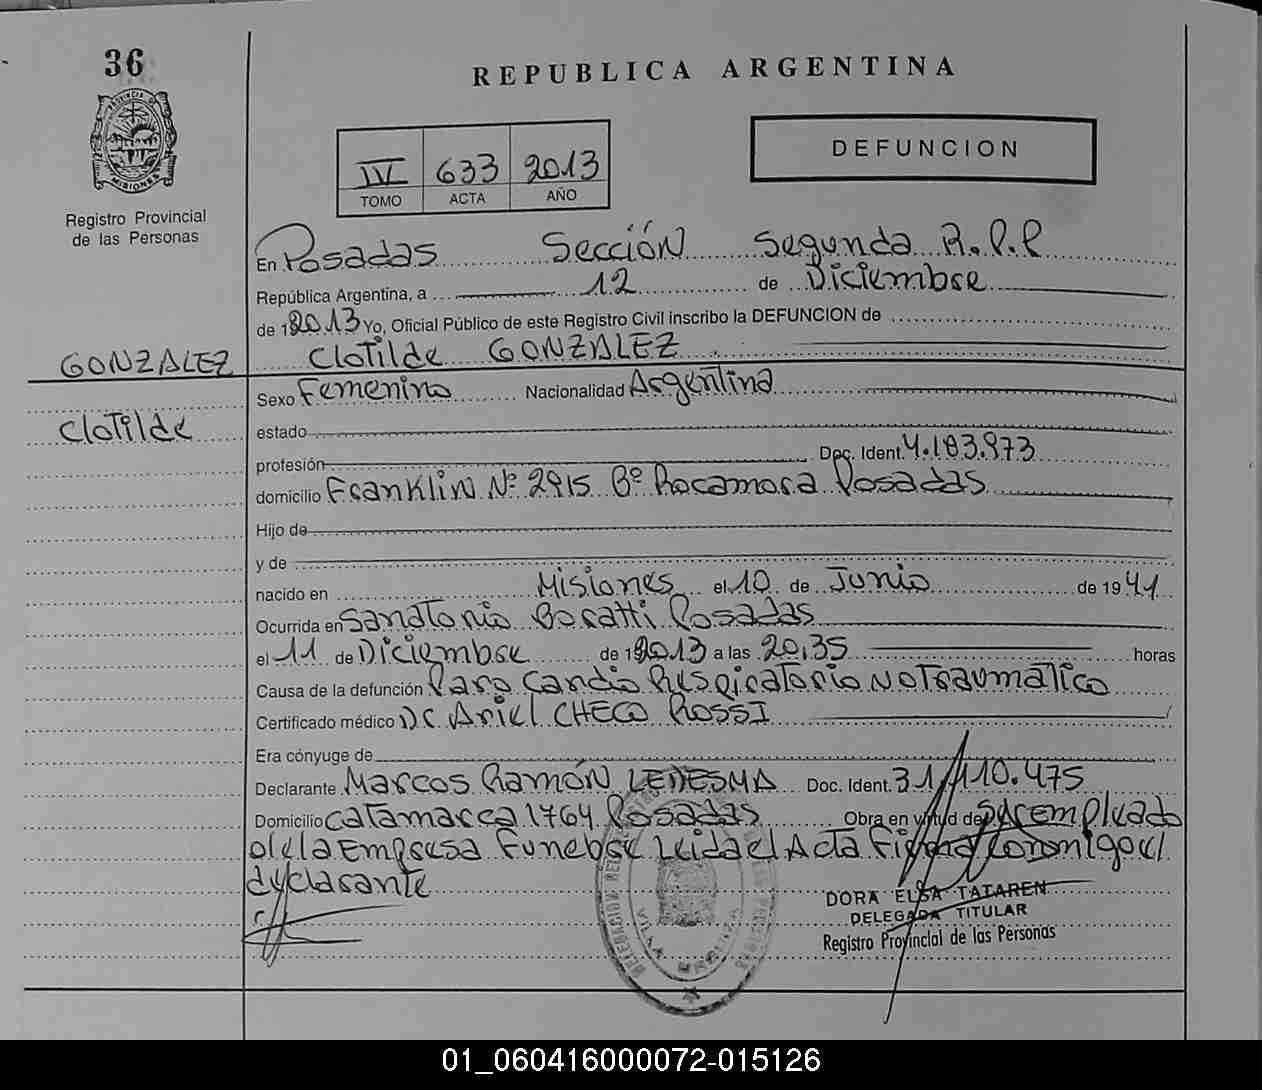 36
REPUBLICA ARGENTINA
PROVINCIA DE
MISIONES
Registro Provincial
de las Personas
IV 633 2013
TOMO ACTA AÑO
DEFUNCION
En Posadas Sección Segunda R.P.P
República Argentina, a 12 de Diciembre
de 2013 Yo, Oficial Público de este Registro Civil inscribo la DEFUNCION de
GONZALEZ Clotilde GONZALEZ
Sexo Femenino Nacionalidad Argentina
Clotilde estado
profesión Doc. Ident. 4.183.973
domicilio Franklin Nº 2915 Bº Rocamora Posadas
Hijo de
y de
nacido en Misiones el 10 de Junio de 1941
Ocurrida en Sanatorio Boratti Posadas
el 11 de Diciembre de 2013 a las 20,35 horas
Causa de la defunción Paro Cardio Respiratorio No Traumático
Certificado médico Dr Ariel CHECO ROSSI
Era cónyuge de
Declarante Marcos Ramón LEDESMA Doc. Ident. 31.110.475
Domicilio Catamarca 1764 Posadas Obra en virtud de ser empleado
de la Empresa Funebre Leida el Acta Firma Conmigo el
declarante
DORA ELSA TATAREN
DELEGADA TITULAR
Registro Provincial de las Personas
VILLA URQUIZA
01_060416000072-015126